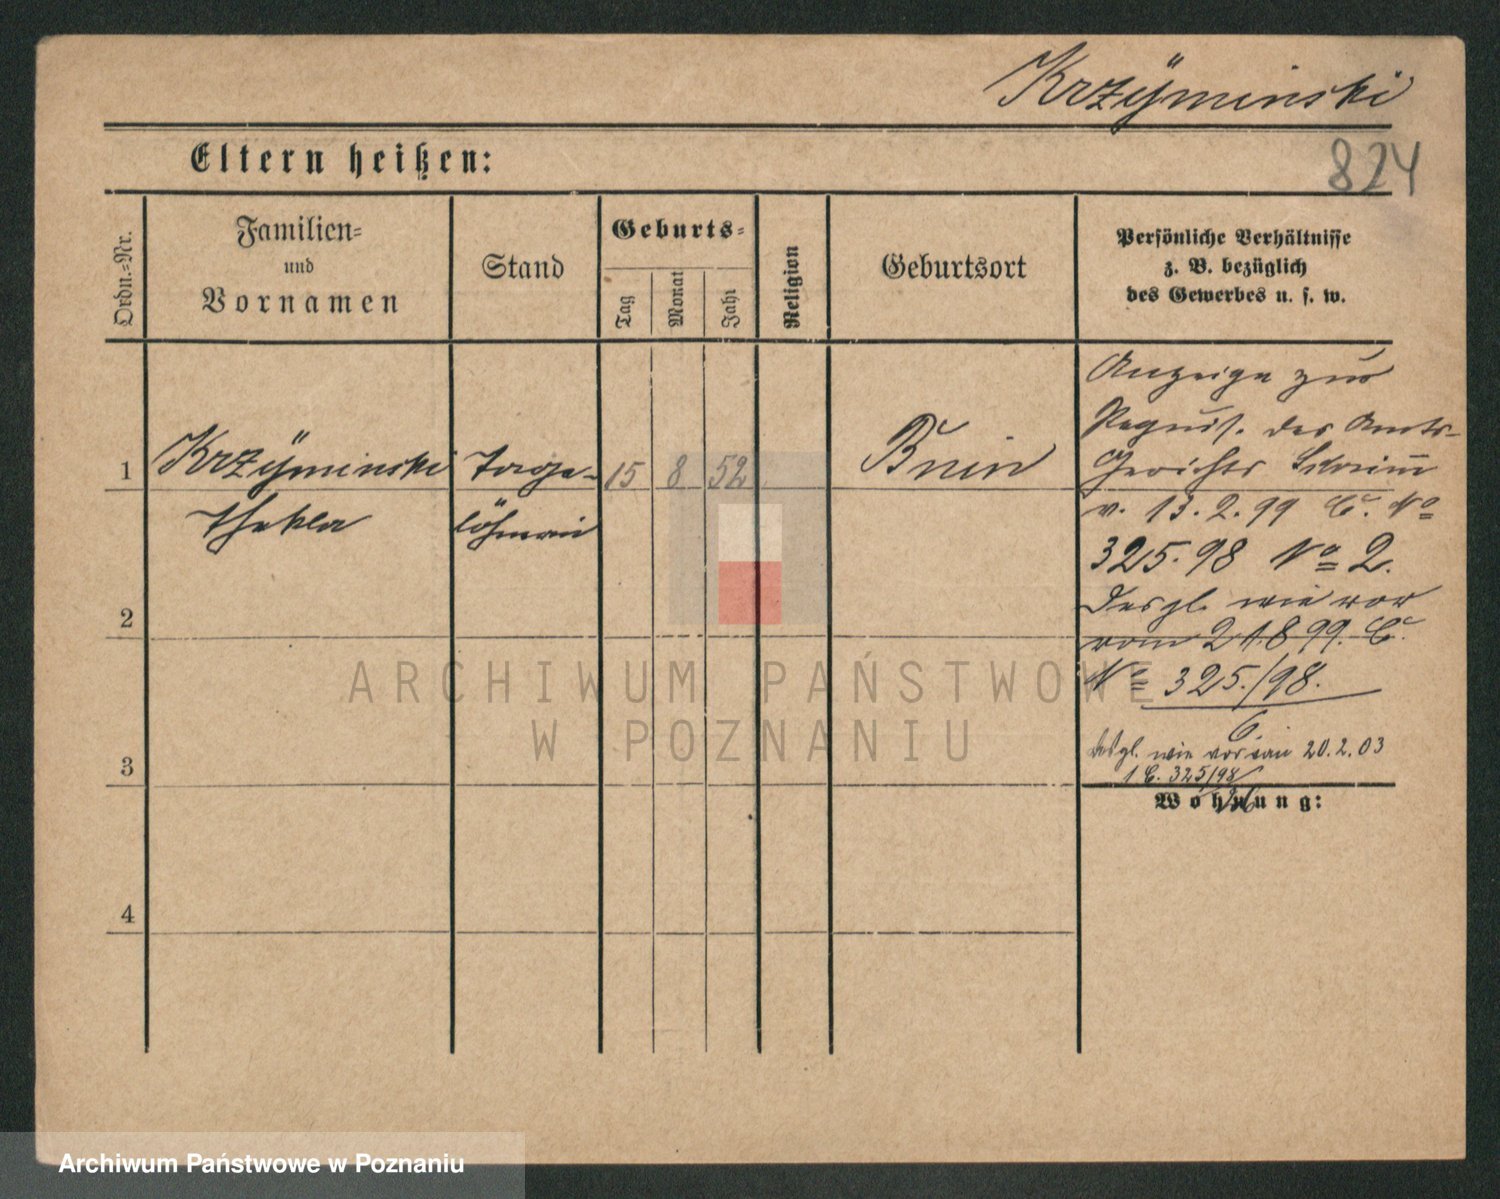 Krzÿminski
824
Eltern heißen:
Ordn.=Nr.
Familien=
und
Vornamen
Stand
Geburts=
Tag
Monat
Jahr
Religion
Geburtsort
Persönliche Verhältnisse
z. B. bezüglich
des Gewerbes u. s. w.
1
Krzÿminski
Thekla
Tage-
löhnerin
15 8 52
Bnin
Anzeige zur
Requis. des Amts-
Gerichts Schrimm
v. 13.2.99 C. No
325.98 No 2.
Desgl. wie vor
vom 21.8.99. C.
No 325./98.
6.
desgl. wie vor vom 20.2.03
1 C. 325/98
26
2
3
4
Wohnung:
ARCHIWUM PAŃSTWOWE
W POZNANIU
Archiwum Państwowe w Poznaniu